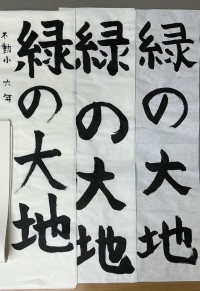 緑の大地
緑の大地
緑の大地
不動小 六年